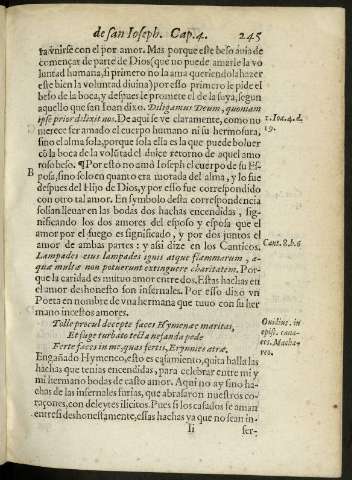 de san Ioseph. Cap. 4. 245
ra vnirse con el por amor. Mas porque este beso auia de
començar de parte de Dios (que no puede amarle la vo
luntad humana, si primero no la ama queriendola hazer
este bien la voluntad diuina) por esso primero le pide el
beso de la boca, y despues le promete el de la suya, segun
aquello que san Ioan dixo. Diligamus Deum, quoniam
ipse prior dilexit nos. De aqui se ve claramente, como no
1. Ioa. 4. d.
19.
merece ser amado el cuerpo humano ni su hermosura,
sino el alma sola, porque sola ella es la que puede boluer
cõ la boca de la volũtad el dulce retorno de aquel amo
roso beso. ¶ Por esto no amó Ioseph el cuerpo de su Es
B
posa, sino solo en quanto era morada del alma, y lo fue
despues del Hijo de Dios, y por esso fue correspondido
con otro tal amor. En symbolo desta correspondencia
solian lleuar en las bodas dos hachas encendidas, sig
nificando los dos amores del esposo y esposa que el
amor por el fuego es significado, y por dos juntos el
amor de ambas partes: y assi dize en los Canticos.
Cant. 8. b. 6
Lampades eius lampades ignis atque flammarum, a-
quæ multæ non potuerunt extinguere charitatem. Por-
que la caridad es mutuo amor entre dos. Estas hachas en
el amor deshonesto son infernales. Por esso dixo vn
Poeta en nombre de vna hermana que tuuo con su her
mano incestos amores.
Tolle procul decepte faces Hymenæe maritas,
Et fuge turbato tecta nefanda pede
Fert e faces in me, quas fertis, Erynnies atræ.
Ouidius. in
epist. cana-
ces. Macha-
reo.
Engañado Hymeneo, esto es casamiento, quita halla las
hachas que tenias encendidas, para celebrar entre mi y
mi hermano bodas de casto amor. Aqui no ay sino ha-
chas de las infernales furias, que abrasaron nuestros co-
raçones, con deleytes ilicitos. Pues si los casados se aman
entre si deshonestamente, essas hachas ya que no sean in-
Ii
fer-